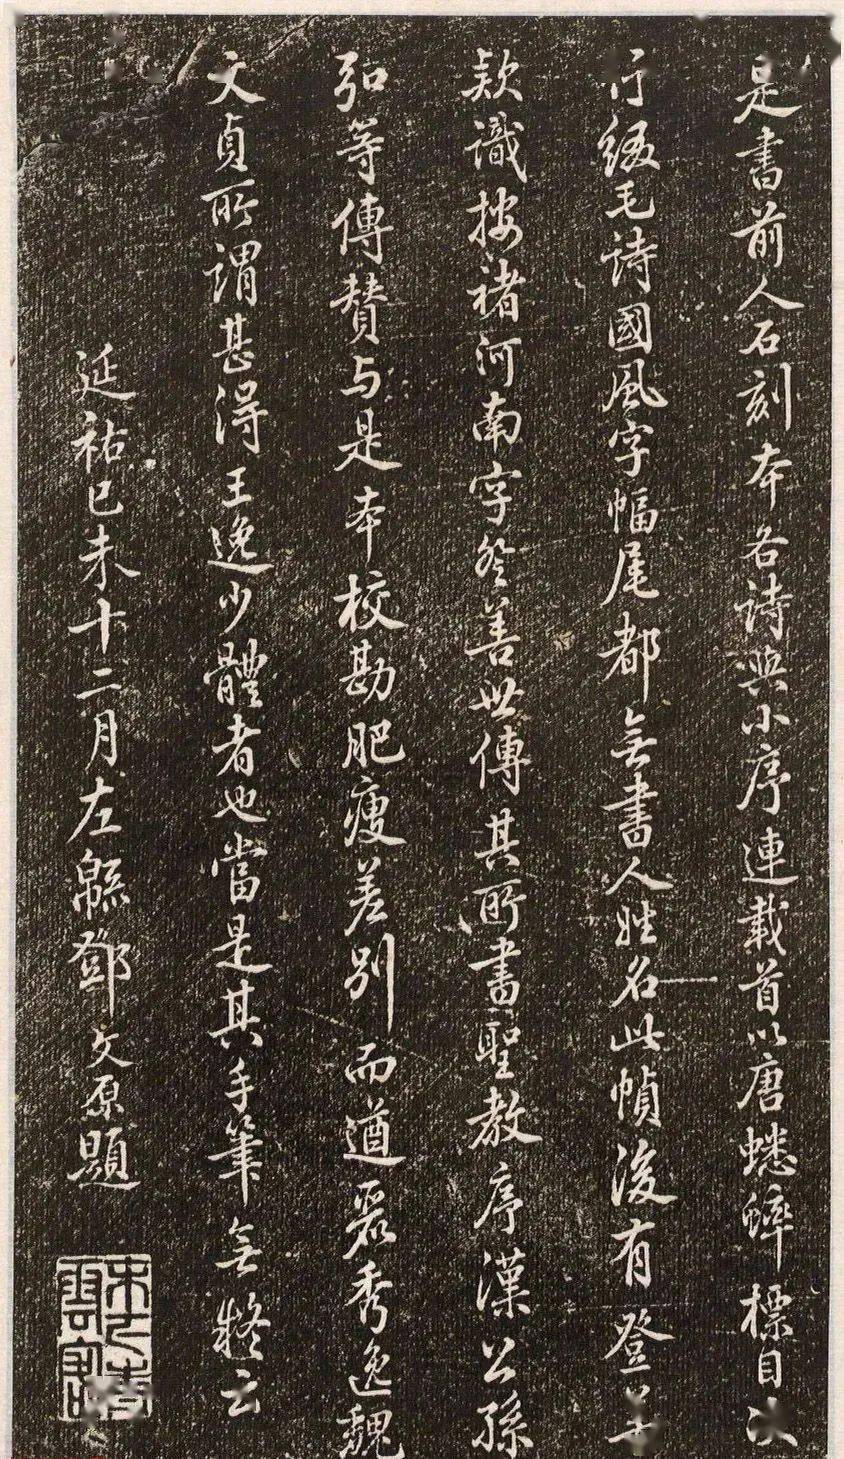 是書前人石刻本各詩與小序連載首以唐蟋蟀標目次
行綴毛詩國風字幅尾都無書人姓名此幀後有登善
款識按褚河南字登善世傳其所書聖教序漢公孫
弘等傳贊与是本校勘肥瘦差別而遒麗秀逸魏
文貞所謂甚得王逸少體者也當是其手筆無疑云
延祐已未十二月左緜鄧文原題